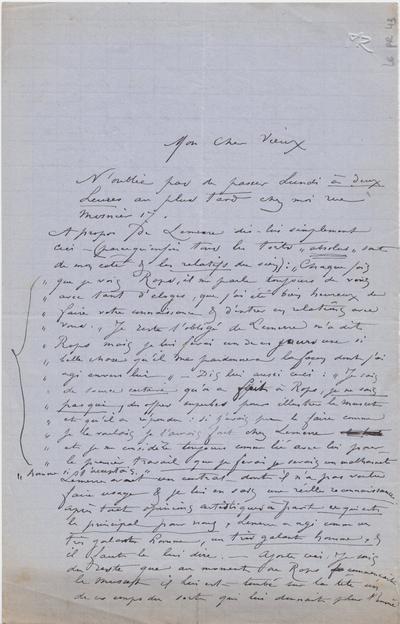 LE PR 43
Mon Cher Vieux
N'oublie pas de passer Lundi à deux
heures au plus tard chez moi rue
Mosnier 17.
A propos de Lemerre dis-lui simplement
ceci - (parcequ'enfin tous les torts "absolus" sont
de mon coté & les relatifs du sien): "Chaque fois
que je vois Rops, il me parle toujours de vous
avec tant d'éloges, que j'ai été bien heureux de
faire votre connaissance & d'entrer en relations avec
vous. Je reste l'obligé de Lemerre m'a dit
Rops mais je lui ferai un de ces jours
belle chose qu'il me pardonnera la façon dont j'ai
agi envers lui" - Dis lui aussi ceci: "Je sais
de source certaine qu'on a fait à Rops, je ne sais
pas qui, des offres superbes pour illustrer le Musset
et qu'il a répondu: si j'avais pu le faire comme
je le voulais je l'aurais fait chez Lemerre
et je me considère toujours comme lié avec lui pour
le premier travail que je ferai je serais un malhonnête
"homme" si j'acceptais."
Lemerre avait un contrat dont il n'a pas voulu
faire usage & je lui en sais une réelle reconnaissance
après tout opinions artistiques à part ce qui est
le principal pour nous, Lemerre a agi comme un
très galant homme, un très galant homme, &
il faut le lui dire. - Ajoute ceci: Je sais
du reste que au moment où Rops commençait
le Musset il lui est tombé sur la tête un
de ces coups du sort qui lui donnait plus